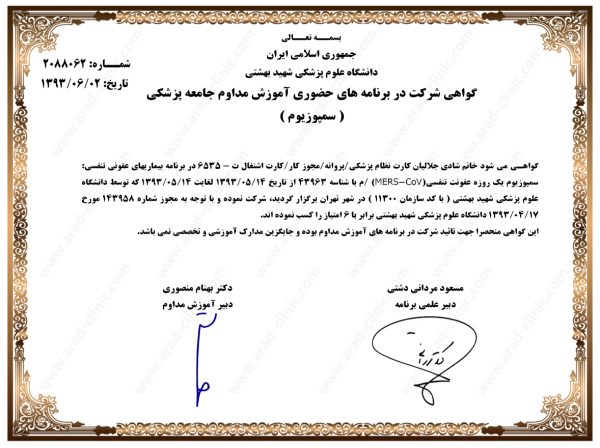 بسمه تعالی
جمهوری اسلامی ایران
دانشگاه علوم پزشکی شهید بهشتی
شماره: ۲۰۸۸۰۶۲
تاریخ: ۱۳۹۳/۰۶/۰۲
گواهی شرکت در برنامه های حضوری آموزش مداوم جامعه پزشکی
( سمپوزیوم )
گواهی می شود خانم شادی جلالیان کارت نظام پزشکی/پروانه/مجوز کار/کارت اشتغال ت – ۶۵۳۵ در برنامه بیماریهای عفونی تنفسی:
سمپوزیوم یک روزه عفونت تنفسی(MERS-CoV) /م با شناسه ۴۳۹۶۳ از تاریخ ۱۳۹۳/۰۵/۱۴ لغایت ۱۳۹۳/۰۵/۱۴ که توسط دانشگاه
علوم پزشکی شهید بهشتی ( با کد سازمان ۱۱۳۰۰ ) در شهر تهران برگزار گردید، شرکت نموده و با توجه به مجوز شماره ۱۴۳۹۵۸ مورخ
۱۳۹۳/۰۴/۱۷ دانشگاه علوم پزشکی شهید بهشتی برابر با ۶ امتیاز را کسب نموده اند.
این گواهی منحصرا جهت تائید شرکت در برنامه های آموزش مداوم بوده و جایگزین مدارک آموزشی و تخصصی نمی باشد.
مسعود مردانی دشتی
دبیر علمی برنامه
دکتر بهنام منصوری
دبیر آموزش مداوم
www.arad-clinic.com